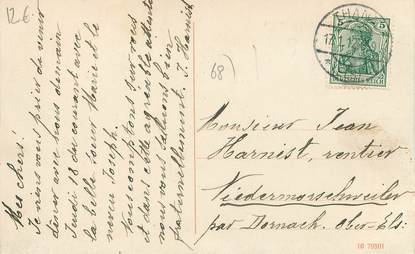 12€
68
THANN
5
DEUTSCHES REICH
Mes chers!
Je viens vous prier de venir
dîner avec nous demain
Jeudi 18 du courant avec
la belle soeur Marie et le
neveu Joseph.
Nous comptons sur vous
et dans cette agréable attente
nous vous saluons bien
fraternellement. J. Harnist
Monsieur Jean
Harnist, rentier
Niedermorschweiler
par Dornach. Ober-Els: